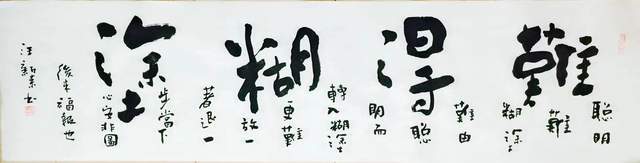 難得糊塗
聰明
難
糊塗
難由
聰
明而
轉入糊塗
更難
放一
著退一
步當下
心安非圖
後來福報也
汪新 書